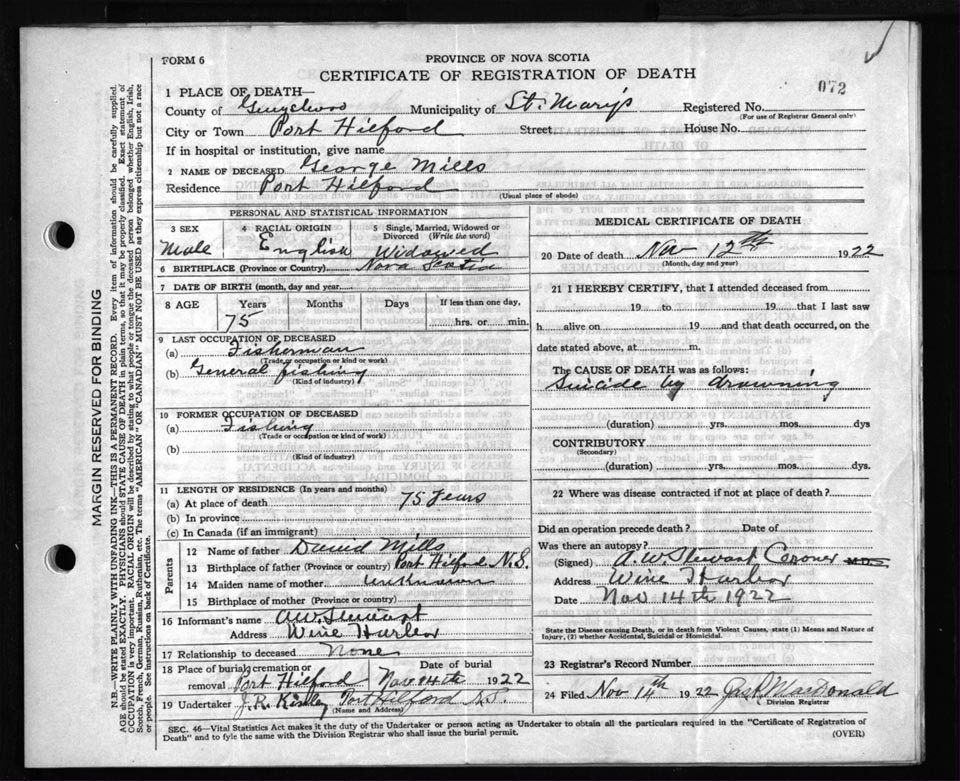 FORM 6
PROVINCE OF NOVA SCOTIA
CERTIFICATE OF REGISTRATION OF DEATH
072
1 PLACE OF DEATH—
County of Guysboro Municipality of St. Mary's Registered No.
(For use of Registrar General only)
City or Town Port Hilford Street House No.
If in hospital or institution, give name
2 NAME OF DECEASED George Mills
Residence Port Hilford
(Usual place of abode)
PERSONAL AND STATISTICAL INFORMATION
3 SEX 4 RACIAL ORIGIN 5 Single, Married, Widowed or Divorced (Write the word)
Male English Widowed
6 BIRTHPLACE (Province or Country) Nova Scotia
7 DATE OF BIRTH (month, day and year)
8 AGE Years Months Days If less than one day,
75 hrs. or min.
9 LAST OCCUPATION OF DECEASED
(a) Fisherman
(Trade or occupation or kind of work)
(b) General fishing
(Kind of industry)
10 FORMER OCCUPATION OF DECEASED
(a) Fishing
(Trade or occupation or kind of work)
(b)
(Kind of industry)
11 LENGTH OF RESIDENCE (In years and months)
(a) At place of death 75 Years
(b) In province
(c) In Canada (if an immigrant)
Parents
12 Name of father David Mills
13 Birthplace of father (Province or country) Port Hilford N.S.
14 Maiden name of mother Unknown
15 Birthplace of mother (Province or country)
16 Informant's name A.W. Stewart
Address Wine Harbor
17 Relationship to deceased None
18 Place of burial, cremation or removal Port Hilford Date of burial Nov 14th 1922
19 Undertaker J.R. Kinley Port Hilford N.S.
(Name and Address)
MEDICAL CERTIFICATE OF DEATH
20 Date of death Nov 12th 1922
(Month, day and year)
21 I HEREBY CERTIFY, that I attended deceased from
19 to 19 that I last saw
h alive on 19 and that death occurred, on the
date stated above, at m.
The CAUSE OF DEATH was as follows:
Suicide by drowning
(duration) yrs. mos. dys
CONTRIBUTORY
(Secondary)
(duration) yrs. mos. dys.
22 Where was disease contracted if not at place of death?
Did an operation precede death? Date of
Was there an autopsy?
(Signed) A.W. Stewart Coroner M.D.
Address Wine Harbor
Date Nov 14th 1922
State the Disease causing Death, or in death from Violent Causes, state (1) Means and Nature of
Injury, (2) whether Accidental, Suicidal or Homicidal.
23 Registrar's Record Number
24 Filed Nov 14th 1922 Jas R MacDonald
Division Registrar
SEC. 46—Vital Statistics Act makes it the duty of the Undertaker or person acting as Undertaker to obtain all the particulars required in the "Certificate of Registration of
Death" and to fyle the same with the Division Registrar who shall issue the burial permit.
(OVER)
MARGIN RESERVED FOR BINDING
N.B.—WRITE PLAINLY WITH UNFADING INK—THIS IS A PERMANENT RECORD. Every item of information should be carefully supplied.
AGE should be stated EXACTLY. PHYSICIANS should STATE CAUSE OF DEATH in plain terms, so that it may be properly classified. Exact statement of
OCCUPATION is very important. RACIAL ORIGIN will be described by stating to what people or tongue the deceased person belonged whether English, Irish,
Scotch, French, German, Russian, Ruthenian, etc. The terms "AMERICAN" OR "CANADIAN" MUST NOT BE USED as they express citizenship but not a race
or people. See instructions on back of Certificate.